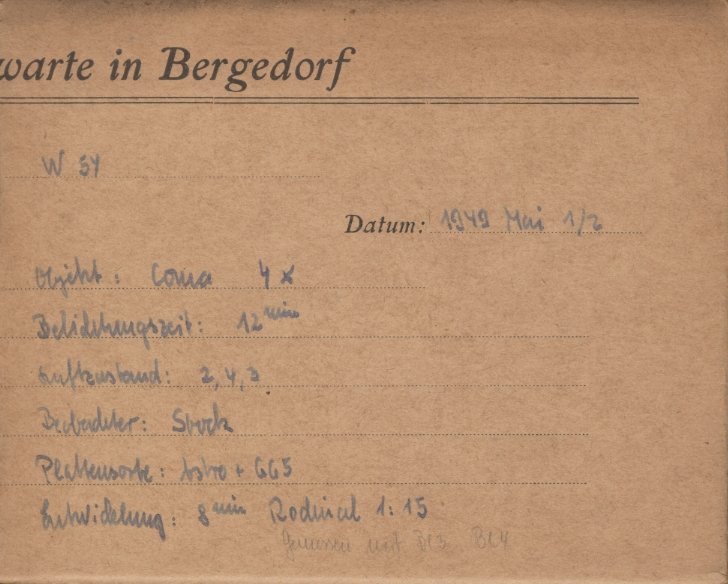 warte in Bergedorf
W 54
Datum: 1949 Mai 1/2
Objekt: Coma 4 x
Belichtungszeit: 12 min
Luftzustand: 2, 4, 3
Beobachter: Stock
Plattensorte: Astro + GG5
Entwicklung: 8 min Rodinal 1:15
Gemessen mit